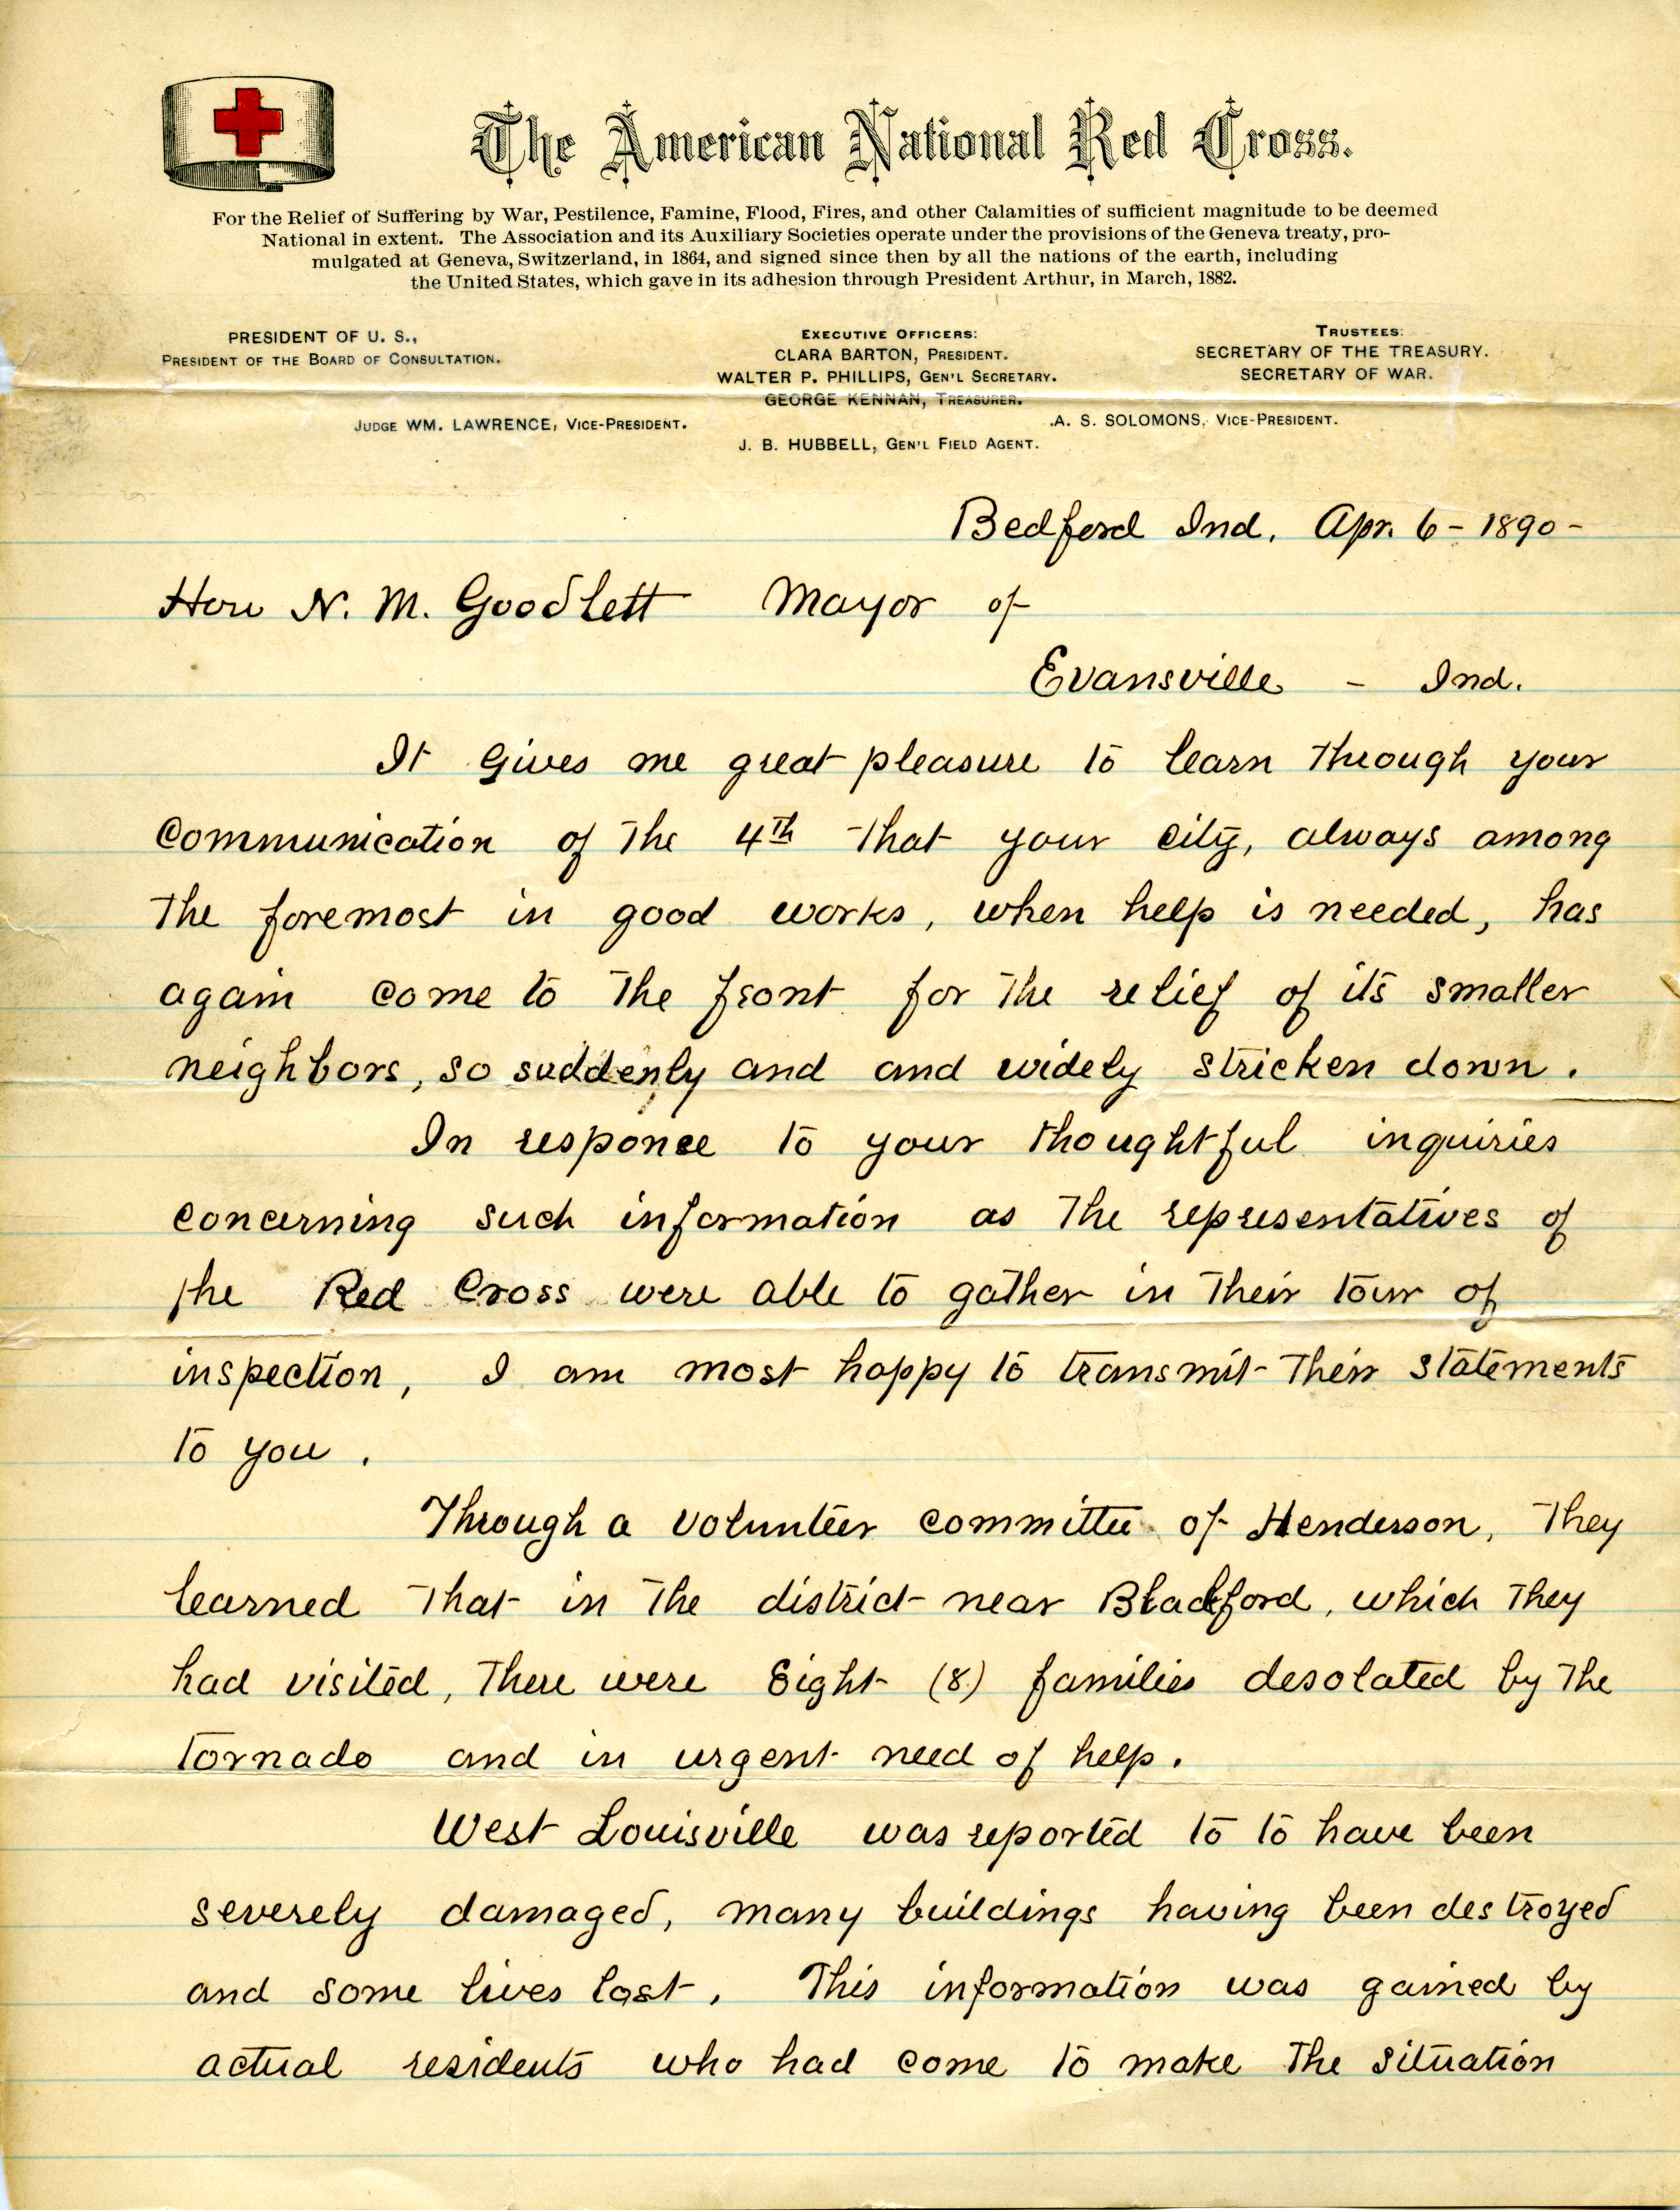 The American National Red Cross.
For the Relief of Suffering by War, Pestilence, Famine, Flood, Fires, and other Calamities of sufficient magnitude to be deemed
National in extent. The Association and its Auxiliary Societies operate under the provisions of the Geneva treaty, pro-
mulgated at Geneva, Switzerland, in 1864, and signed since then by all the nations of the earth, including
the United States, which gave in its adhesion through President Arthur, in March, 1882.
PRESIDENT OF U. S.,
PRESIDENT OF THE BOARD OF CONSULTATION.
EXECUTIVE OFFICERS:
CLARA BARTON, PRESIDENT.
WALTER P. PHILLIPS, GEN'L SECRETARY.
GEORGE KENNAN, TREASURER.
TRUSTEES:
SECRETARY OF THE TREASURY.
SECRETARY OF WAR.
JUDGE WM. LAWRENCE, VICE-PRESIDENT.
A. S. SOLOMONS, VICE-PRESIDENT.
J. B. HUBBELL, GEN'L FIELD AGENT.
Bedford Ind. Apr. 6 - 1890 -
Hon N. M. Goodlett Mayor of
Evansville - Ind.
It gives me great pleasure to learn through your
communication of the 4th that your city, always among
the foremost in good works, when help is needed, has
again come to the front for the relief of its smaller
neighbors, so suddenly and and widely stricken down.
In responce to your thoughtful inquiries
concerning such information as the representatives of
the Red Cross were able to gather in their tour of
inspection, I am most happy to transmit their statements
to you.
Through a volunteer committee of Henderson, they
learned that in the district near Blackford, which they
had visited, there were Eight (8) families desolated by the
tornado and in urgent need of help.
West Louisville was reported to to have been
severely damaged, many buildings having been destroyed
and some lives lost. This information was gained by
actual residents who had come to make the situation